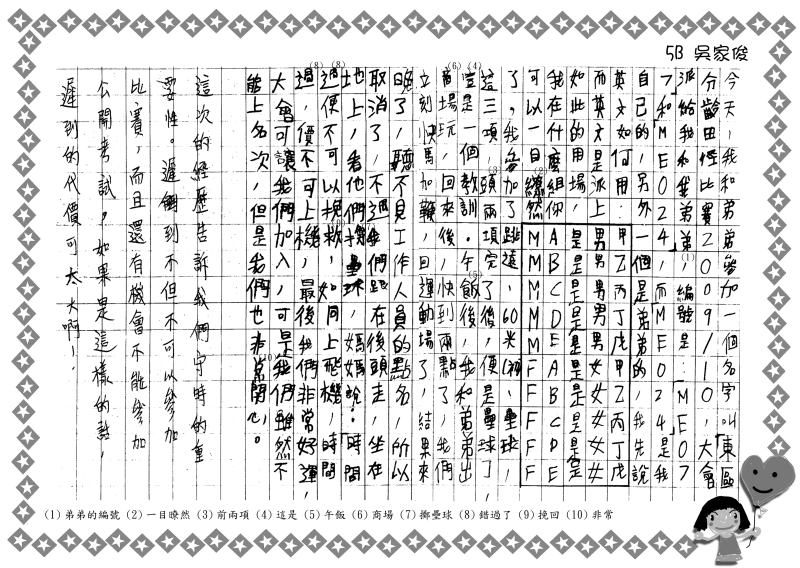 5B 吳家俊
今天,我和弟弟參加一個名字叫東區
分齡田徑比賽2009/10,大會
派給我和我弟弟,編號是:「ME07
7」和「ME024」,而ME024是我
自己的,另外一個是弟弟的,我先說
英文如何用:甲乙丙丁戊甲乙丙丁戊
而英文是派上男男男男男女女女女女
如此的用場,是是是是是是是是是是
我在什麼組你ABCDEABCDE
可以一目繚然MMMMMFFFFF
了。我參加了跳遠、60米、壘球,
這三項,頭兩項完了後,便是壘球了,
豈是一個教訓。午飯後,我和弟弟出
商場玩,回來後,快到兩點了,我們
立刻快馬加鞭,回運動場了,結果來
晚了,聽不見工作人員的點名,所以
取消了,不過我們跑在後頭走,坐在
地上,看他們擲壘球,媽媽說:「時間
過便不可以挽救,如同上飛機,時間
過,價不可上機,最後我們非常好運,
大會可讓我們加入,可是我們雖然不
能上名次,但是我們也非常開心。
這次的經歷告訴我們守時的重
要性。遲到不但不可以參加
比賽,而且還有機會不能參加
公開考試,如果是這樣的話,
遲到的代價可太大啊!
(1) 弟弟的編號 (2) 一目瞭然 (3) 前兩項 (4) 這是 (5) 午飯 (6) 商場 (7) 擲壘球 (8) 錯過了 (9) 挽回 (10) 非常